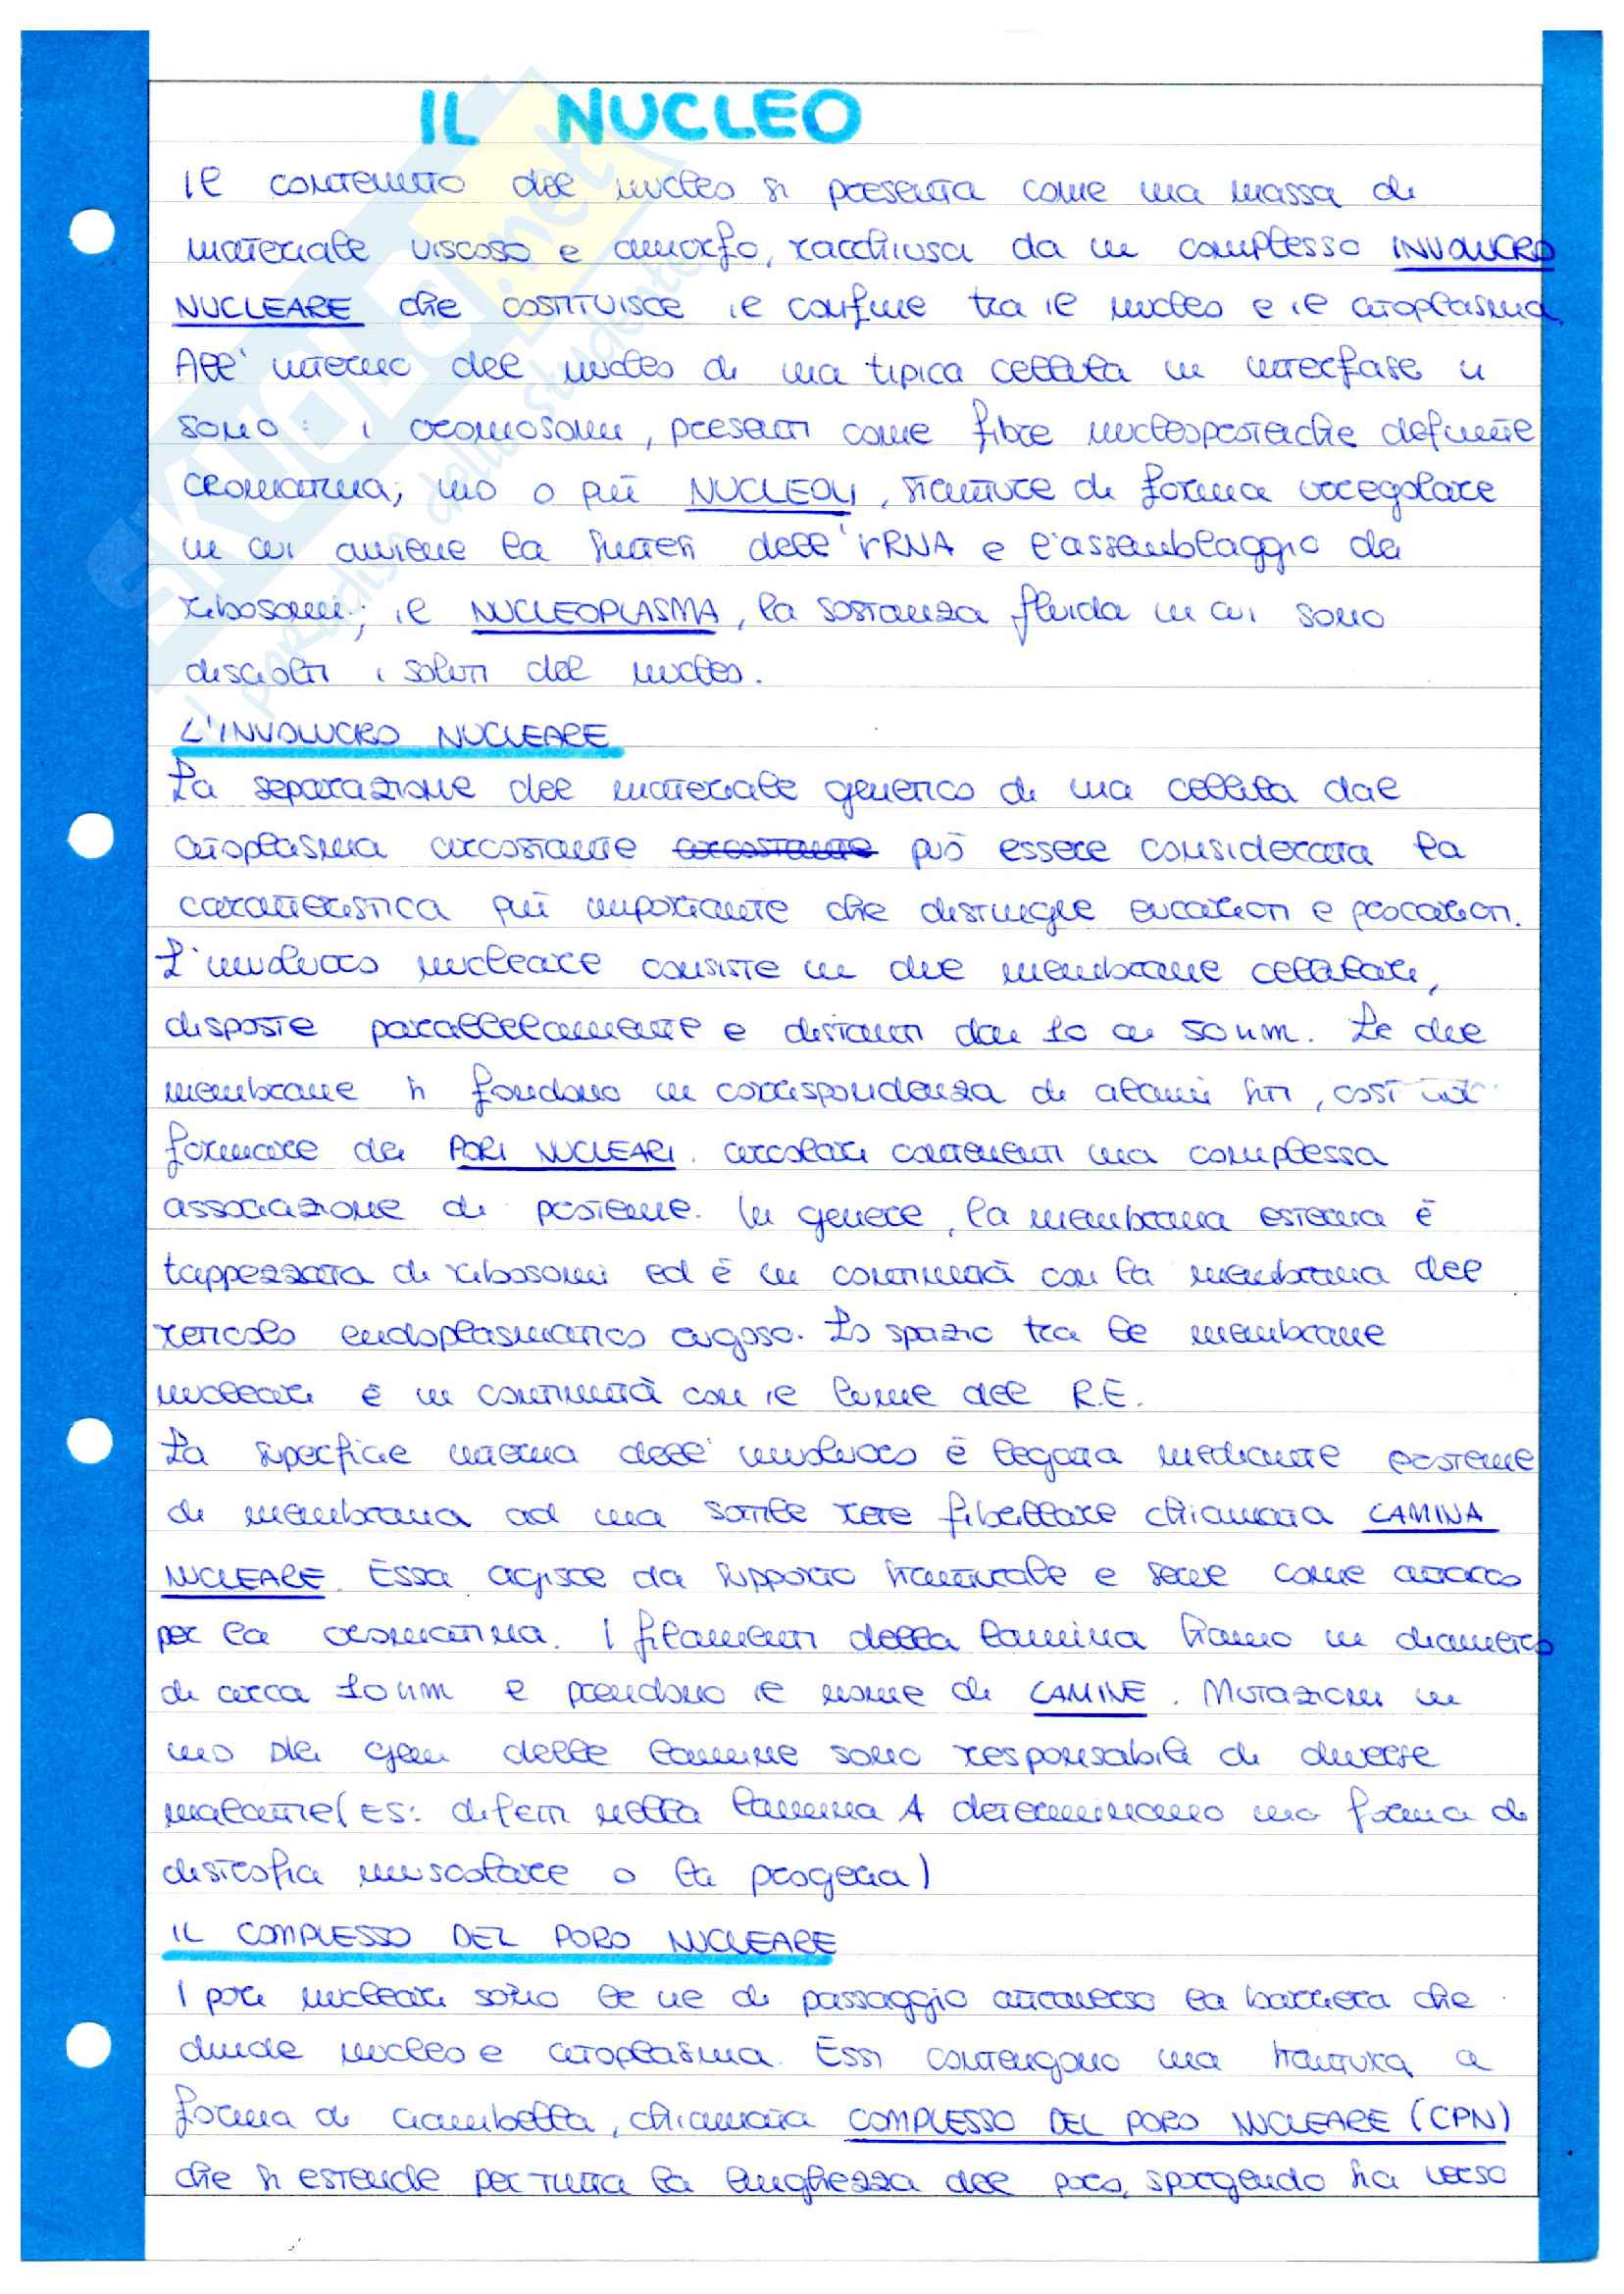 IL NUCLEO
Il contenuto del nucleo si presenta come una massa di
materiale viscoso e amorfo, racchiusa da un complesso INVOLUCRO
NUCLEARE che costituisce il confine tra il nucleo e il citoplasma.
All'interno del nucleo di una tipica cellula in interfase vi
sono: i cromosomi, presenti come fibre nucleoproteiche definite
cromatina; uno o più NUCLEOLI, strutture di forma irregolare
in cui avviene la sintesi dell'rRNA e l'assemblaggio dei
ribosomi; il NUCLEOPLASMA, la sostanza fluida in cui sono
disciolti i soluti del nucleo.
L'INVOLUCRO NUCLEARE
La separazione del materiale genetico di una cellula dal
citoplasma circostante può essere considerata la
caratteristica più importante che distingue eucarioti e procarioti.
L'involucro nucleare consiste in due membrane cellulari,
disposte parallelamente e distanti dai 10 ai 50 nm. Le due
membrane si fondono in corrispondenza di alcuni siti, così
formare dei PORI NUCLEARI circolari contenenti una complessa
associazione di proteine. In genere, la membrana esterna è
tappezzata di ribosomi ed è in continuità con la membrana del
reticolo endoplasmatico rugoso. Lo spazio tra le membrane
nucleari è in continuità con il lume del R.E.
La superficie interna dell'involucro è legata mediante proteine
di membrana ad una sottile rete fibrillare chiamata LAMINA
NUCLEARE. Essa agisce da supporto strutturale e serve come attacco
per la cromatina. I filamenti della lamina hanno un diametro
di circa 10 nm e prendono il nome di LAMINE. Mutazioni in
uno dei geni delle lamine sono responsabili di diverse
malattie (ES: difetti nella lamina A determinano una forma di
distrofia muscolare o la progeria)
IL COMPLESSO DEL PORO NUCLEARE
I pori nucleari sono le vie di passaggio attraverso la barriera che
divide nucleo e citoplasma. Essi contengono una struttura a
forma di ciambella, chiamata COMPLESSO DEL PORO NUCLEARE (CPN)
che si estende per tutta la lunghezza del poro, sporgendo sia verso
SKUOLA.net
il paradiso dello studente